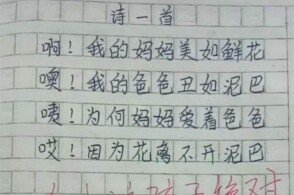 诗一首
啊！我的妈妈美如鲜花
噢！我的爸爸丑如泥巴
咦！为何妈妈爱着爸爸
哎！因为花离不开泥巴